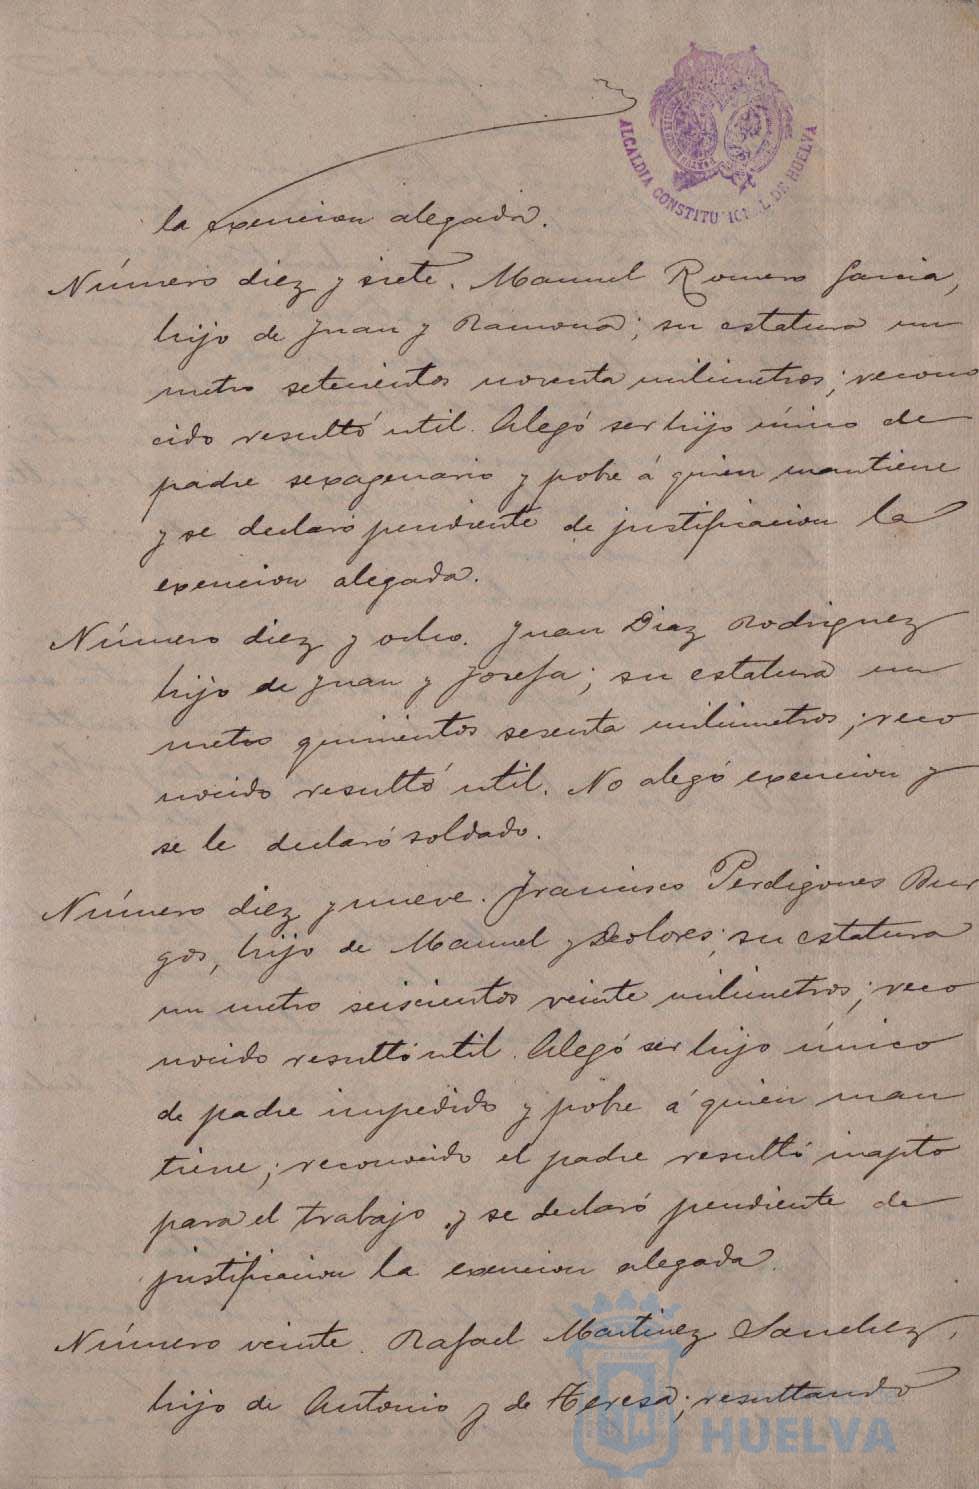 ALCALDIA CONSTITUCIONAL DE HUELVA
la exencion alegada.
Número diez y siete. Manuel Romero Garcia,
hijo de Juan y Ramona; su estatura un
metro setecientos noventa milimetros; recono
cido resultó util. Alegó ser hijo único de
padre sexagenario y pobre á quien mantiene
y se declaró pendiente de justificacion la
exencion alegada.
Número diez y ocho. Juan Diaz Rodriguez
hijo de Juan y Josefa; su estatura un
metro quinientos sesenta milimetros; reco
nocido resultó util. No alegó exencion y
se le declaró soldado.
Número diez y nueve. Francisco Perdigones Bur
gos, hijo de Manuel y Dolores; su estatura
un metro seiscientos veinte milimetros; reco
nocido resultó util. Alegó ser hijo único
de padre impedido y pobre á quien man
tiene; reconocido el padre resultó inapto
para el trabajo y se declaró pendiente de
justificacion la exencion alegada.
Número veinte. Rafael Martinez Sanchez,
hijo de Antonio y de Teresa; resultando
HUELVA